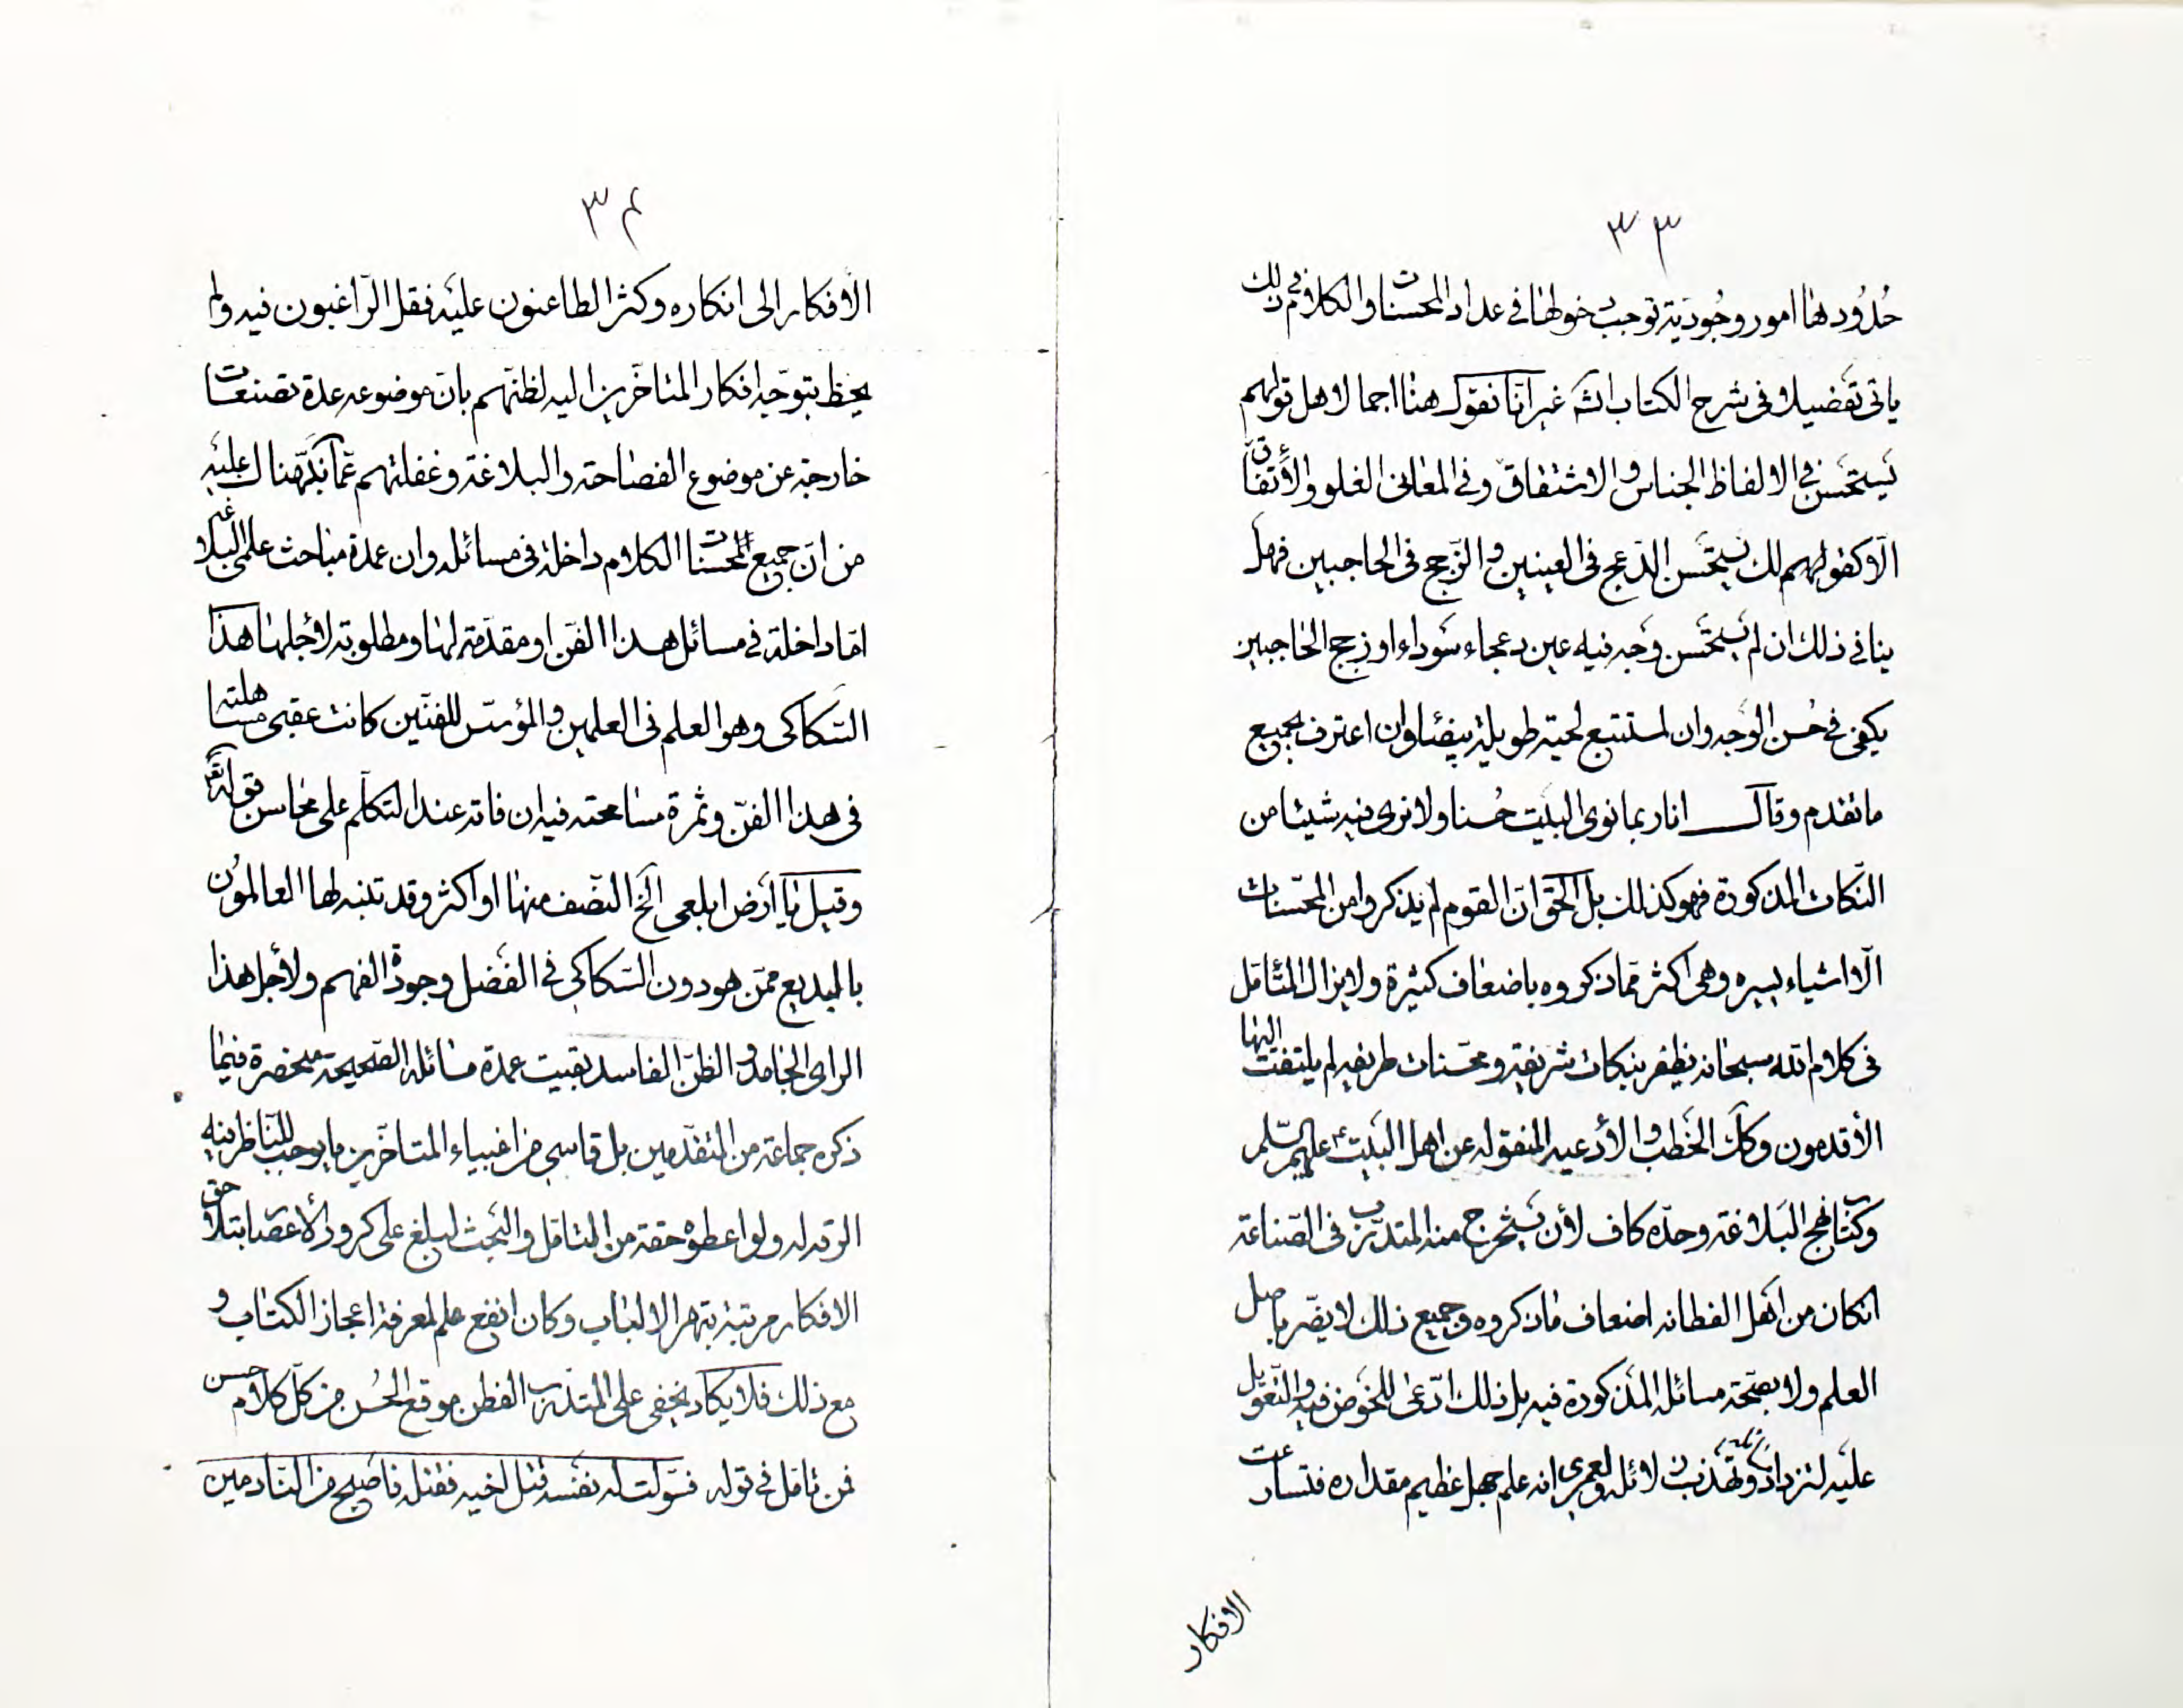 ٣٣
حُدُودها امور وجُوديّة توجب دخولها في عداد المحسنات والكلام في ذلك
ياتى تفضيلا فى شرح الكتاب انشَ غير انّا نقول هنا اجمالا هل قولهم
يَستحسَن في الالفاظ الجناس والاشتقاق وفى المعانى الغلو والأتّفاق
الّا كقولهم لك يستحسَن الدّعج فى العينين والزّجج فى الحاجبين فهل
ينافى ذلك ان لم يستحسَن وَجه فيه عين دعجاء سَوداء او زجج الحاجبين
يكفى في حُسن الوَجه وان استتبع لحية طويلة بيضاء وان اعترف بجميع
ماتقدم وقال انا ربما نرى البيَت حُسنا ولا نرى فيه شيئا من
النّكات المذكورة فهو كذلك بل الحق انّ القوم لم يذكروا من المحسّنات
الّا اشياء يسيره وهى اكثر ممّا ذكروه باضعاف كثيرة ولا يزال المتأمّل
فى كلام الله سبحانه يظفر بنكات شريفة ومحسّنات طريفه لم يلتفت اليها
الأقدمون وكذا الخطب والأدعيه المنقوله عن اهل البَيت عليهم السّلم
وكتاب نهج البَلاغة وحدّه كاف لأن يَستخرج منه المتدرّب فى الصّناعة
انكان من اهَل الفطانه اضعاف ماذكروه وجميع ذلك لايضّر باصل
العلم ولا بصّحة مسائله المذكورة فيه بل ذلك ادّعى للخَوض فيه والتّعوّيل
عليَه لتزداد وتهذّب دلائله ولعمرى انه علم جهل عظيم مقداره فتسارعت
الافكار
٣٤
الأفكار الى انكاره وكثر الطاعنون عليَه فقل الرّاغبون فيه ولم
يحظ بتوجّه افكار المتاخّرين اليه لظنّهم بانّ موضوعه عدة تصنعات
خارجة عن موضوع الفصاحة والبلاغة وغفلتهم عمّا نبّهناك عليَه
من انّ جميع المحسنات الكلام داخلة فى مسائله وان عمدة مباحث علمى البلاغة
امّا داخلة في مسائل هذا الفّن او مقدّمة لها ومطلوبة لأجلها هذا
السّكاكى وهو العلم فى العلمين والمؤسّس للفنّين كانت عقبى مساهلته
فى هذا الفنّ وثمرة مسامحته فيه ان فاته عند التكلّم على محاسن قوله تعَ
وقيل يا أرَض ابلعى الخَ النّصف منها او اكثر وقد تنبه لها العالمون
بالبديع ممّن هو دون السّكاكى في الفَضل وجودة الفهم ولأجل هذا
الراى الجامد والظّن الفاسد بقيت عمدة مسائله الصّحيحة منحصرة فيما
ذكره جماعة من المتقدّمين بل قاسى من اغبياء المتاخّرين مايوجب للنّاظر فيه
الرقه له ولو اعطوه حقه من التامّل والبَحث لبلغ على كرور الأعصَار بتلاحق
الافكار مرتبة تبهر الالباب وكان انفع علم لمعرفة اعجاز الكتاب و
مع ذلك فلا يكاد يخفى على المتدرّب الفطن موقع الحُسن من كلّ كلام حسن
فمن تامّل في قوله فسوّلت له نفسَه قتل اخيه فقتله فاصَبح من النّادمين